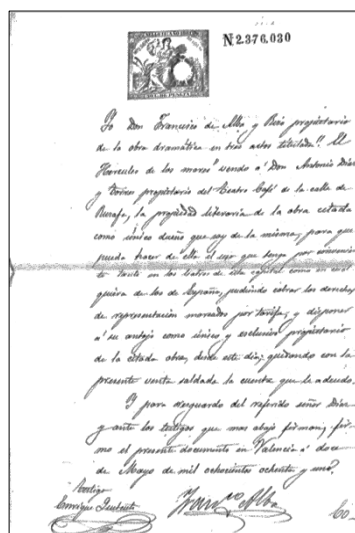 N 2.376.030
Yo Don Francisco de Alba y Bris propietario
de la obra dramática en tres actos titulada "El
Hércules de los mares" vendo á Don Antonio Díaz
y Torres propietario del Teatro Café de la calle de
Ruzafa, la propiedad literaria de la obra citada
como único dueño que soy de la misma, para que
pueda hacer de ella el uso que tenga por convenien
te tanto en los teatros de esta capital como en cual
quiera de los de España, pudiendo cobrar los derechos
de representación marcados por tarifa, y disponer
á su antojo como único y esclusivo propietario
de la citada obra, desde este día; quedando con la
presente venta saldada la cuenta que le adeudo.
Y para resguardo del referido señor Díaz
y ante los testigos que mas abajo firman, fir-
mo el presente documento en Valencia á doce
de Mayo de mil ochocientos ochenta y uno.
Testigo
Enrique
Franco Alba